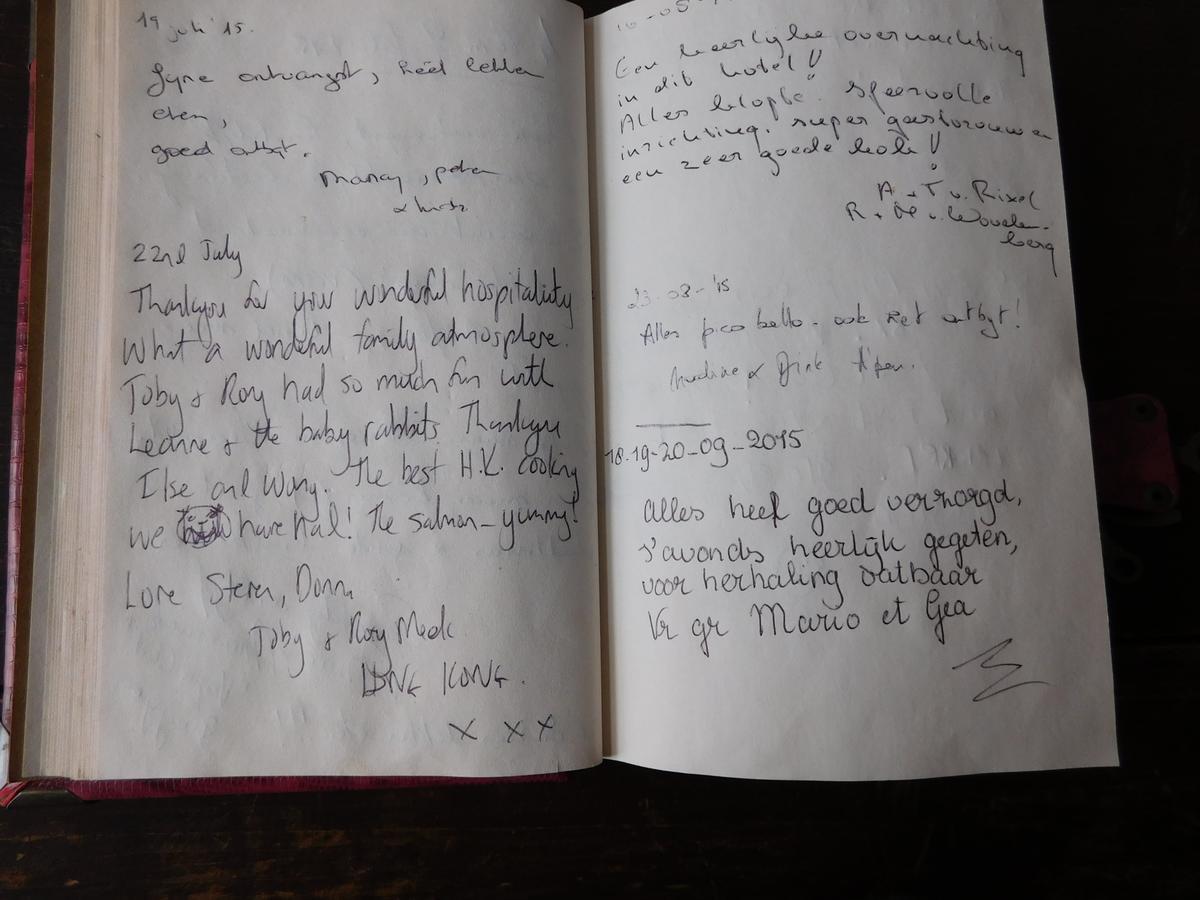 19 juli '15.
fijne ontvangst, heel lekker
eten,
goed ontbijt.
Marcy, peter
22nd July
Thankyou for your wonderful hospitaliuty
What a wonderful family atmosphere.
Toby & Rory had so much fun with
Leanne & the baby rabbits. Thankyou
Ilse and Wong. The best H.K. cooking
we have had! The salmon - yummy!
Love Steven, Donna
Toby & Rory Meek
HONG KONG.
X X X
Een heerlijke overnachting
in dit hotel!!
Alles klopte. Sfeervolle
inrichting, super gastvrouw en
een zeer goede kok!!
A + T v. Rixel
R + M v. Wouden-
berg
23-08-'15
Alles pico bello - ook het ontbijt!
18-19-20-09-2015
alles heel goed verzorgd,
s'avonds heerlijk gegeten,
voor herhaling vatbaar
Vr gr Mario et Gea